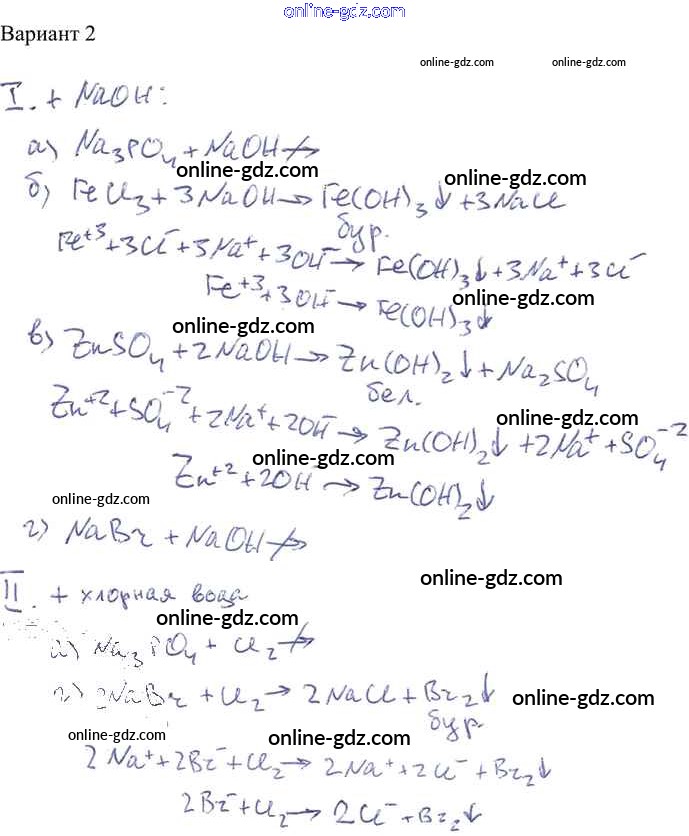 online-gdz.com
Вариант 2
online-gdz.com online-gdz.com
I. + NaOH:
а) Na₃PO₄ + NaOH ↛
online-gdz.com online-gdz.com
б) FeCl₃ + 3NaOH → Fe(OH)₃↓ + 3NaCl
бур.
Fe⁺³ + 3Cl⁻ + 3Na⁺ + 3OH⁻ → Fe(OH)₃↓ + 3Na⁺ + 3Cl⁻
Fe⁺³ + 3OH⁻ → Fe(OH)₃↓
online-gdz.com
online-gdz.com
в) ZnSO₄ + 2NaOH → Zn(OH)₂↓ + Na₂SO₄
бел.
Zn⁺² + SO₄⁻² + 2Na⁺ + 2OH⁻ → Zn(OH)₂↓ + 2Na⁺ + SO₄⁻²
online-gdz.com
online-gdz.com
Zn⁺² + 2OH⁻ → Zn(OH)₂↓
online-gdz.com
г) NaBr + NaOH ↛
online-gdz.com
II. + хлорная вода
online-gdz.com
а) Na₃PO₄ + Cl₂ ↛
г) 2NaBr + Cl₂ → 2NaCl + Br₂↓
online-gdz.com
бур.
online-gdz.com online-gdz.com
2Na⁺ + 2Br⁻ + Cl₂ → 2Na⁺ + 2Cl⁻ + Br₂↓
2Br⁻ + Cl₂ → 2Cl⁻ + Br₂↓